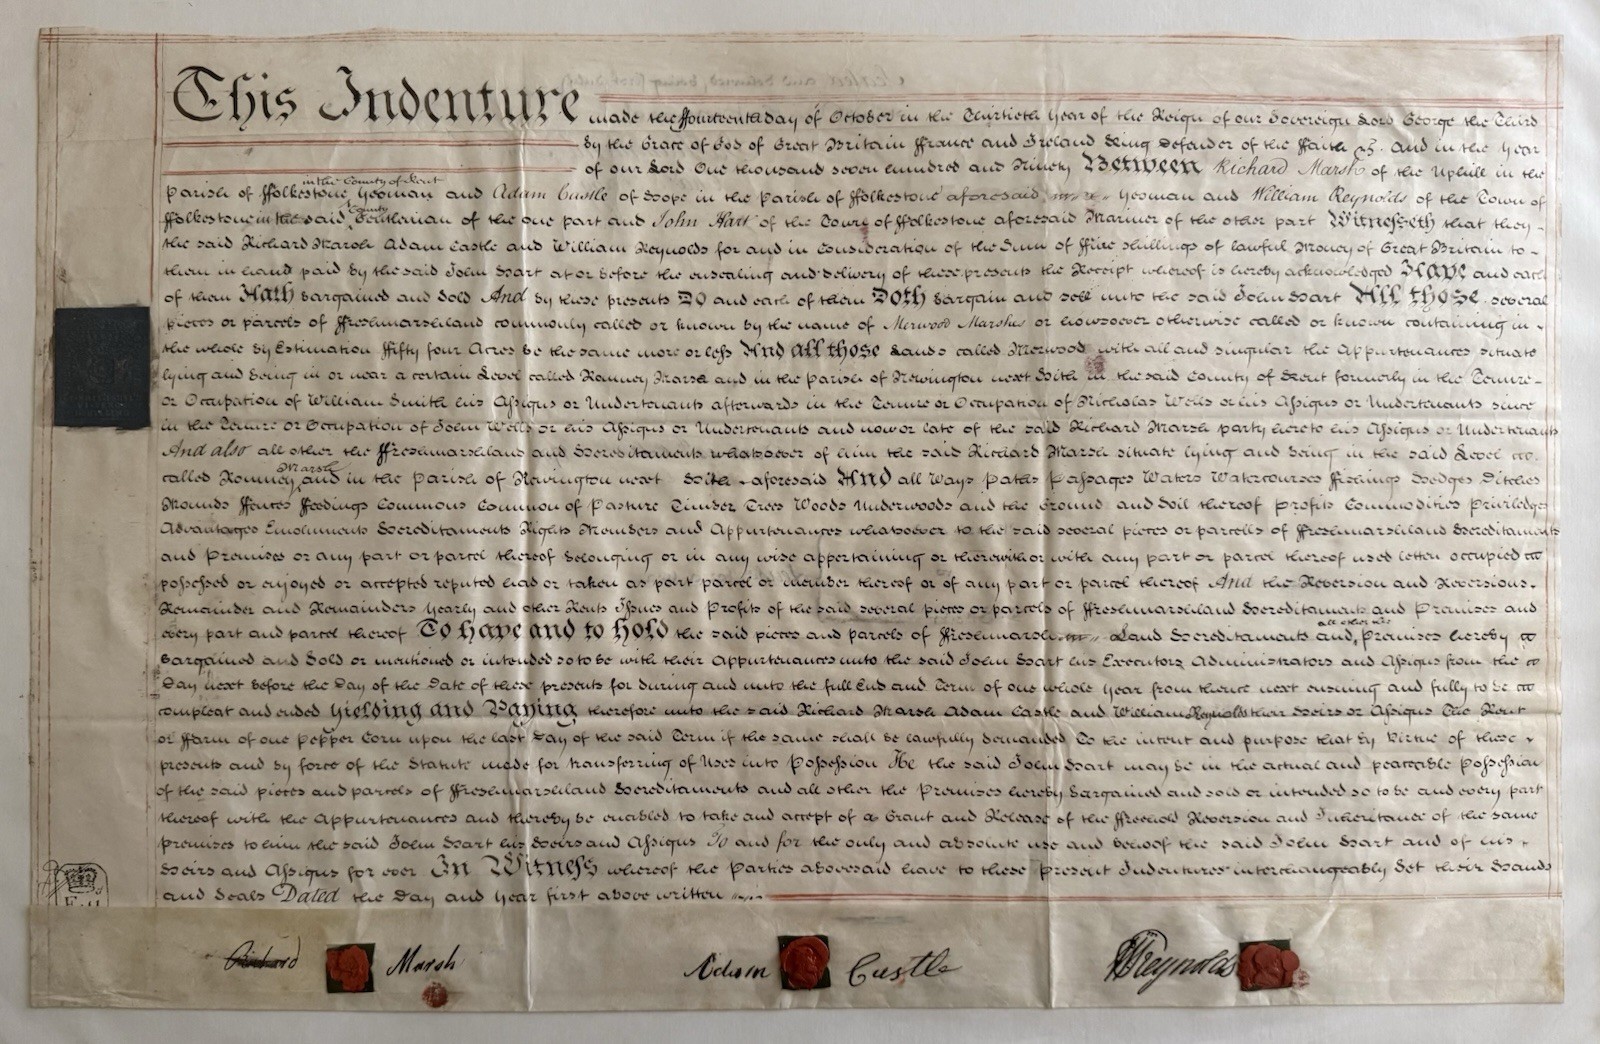 This Indenture made the ffourteenth day of October in the Thirtieth Year of the Reign of our Sovereign Lord George the Third
by the Grace of God of Great Britain ffrance and Ireland King Defender of the ffaith &c. and in the Year
of our Lord One thousand seven hundred and Ninety Between Richard Marsh of the Uphill in the
in the County of Kent
Parish of ffolkestone Yeoman and Adam Castle of Scope in the Parish of ffolkestone aforesaid Yeoman and William Reynolds of the Town of
County
ffolkestone in the said of the one part and John Hart of the Town of ffolkestone aforesaid Mariner of the other part Witnesseth that they
the said Richard Marsh Adam Castle and William Reynolds for and in Consideration of the Sum of ffive shillings of lawful Money of Great Britain to
them in hand paid by the said John Hart at or before the ensealing and delivery of these presents the Receipt whereof is hereby acknowledged Have and each
of them Hath bargained and sold And by these presents Do and each of them Doth bargain and sell unto the said John Hart All those several
pieces or parcels of ffreshmarshland commonly called or known by the name of Merwood Marshes or howsoever otherwise called or known containing in
the whole by Estimation ffifty four Acres be the same more or less And all those Lands called Merwood with all and singular the Appurtenances situate
lying and being in or near a certain Level called Romney Marsh and in the Parish of Newington next Hith in the said County of Kent formerly in the Tenure
or Occupation of William Smith his Assigns or Undertenants afterwards in the Tenure or Occupation of Nicholas Wells or his Assigns or Undertenants since
in the Tenure or Occupation of John Wells or his Assigns or Undertenants and now or late of the said Richard Marsh party hereto his Assigns or Undertenants
And also all other the ffreshmarshland and Hereditaments whatsoever of him the said Richard Marsh situate lying and being in the said Level
Marsh
called Romney and in the Parish of Newington next Hith aforesaid And all Ways Paths Passages Waters Watercourses ffishings Hedges Ditches
Mounds ffences ffeedings Commons Common of Pasture Timber Trees Woods Underwoods and the Ground and Soil thereof Profits Commodities Priviledges
Advantages Emoluments Hereditaments Rights Members and Appurtenances whatsoever to the said several pieces or parcells of ffreshmarshland Hereditaments
and Premises or any part or parcel thereof belonging or in any wise appertaining or therewith or with any part or parcel thereof used letten occupied
possessed or enjoyed or accepted reputed had or taken as part parcel or member thereof or of any part or parcel thereof And the Reversion and Reversions
Remainder and Remainders Yearly and other Rents Issues and Profits of the said several pieces or parcels of ffreshmarshland Hereditaments and Premises and
all other the
every part and parcel thereof To have and to hold the said pieces and parcels of ffreshmarsh Land Hereditaments and Premises hereby
bargained and sold or mentioned or intended so to be with their Appurtenances unto the said John Hart his Executors Administrators and Assigns from the
Day next before the Day of the Date of these presents for during and unto the full End and Term of one whole Year from thence next ensuing and fully to be
compleat and ended Yielding and Paying therefore unto the said Richard Marsh Adam Castle and William Reynolds their Heirs or Assigns The Rent
or ffarm of one Pepper Corn upon the last Day of the said Term if the same shall be lawfully demanded To the intent and purpose that by Virtue of these
presents and by force of the Statute made for transferring of Uses into Possession He the said John Hart may be in the actual and peaceable Possession
of the said pieces and parcels of ffreshmarshland Hereditaments and all other the Premises hereby bargained and sold or intended so to be and every part
thereof with the Appurtenances and thereby be enabled to take and accept of a Grant and Release of the ffreehold Reversion and Inheritance of the same
premises to him the said John Hart his Heirs and Assigns To and for the only and absolute use and behoof of the said John Hart and of his
Heirs and Assigns for ever In Witness whereof the Parties abovesaid have to these Present Indentures interchangeably set their Hands
and Seals Dated the Day and Year first above written
Richard Marsh Adam Castle WReynolds